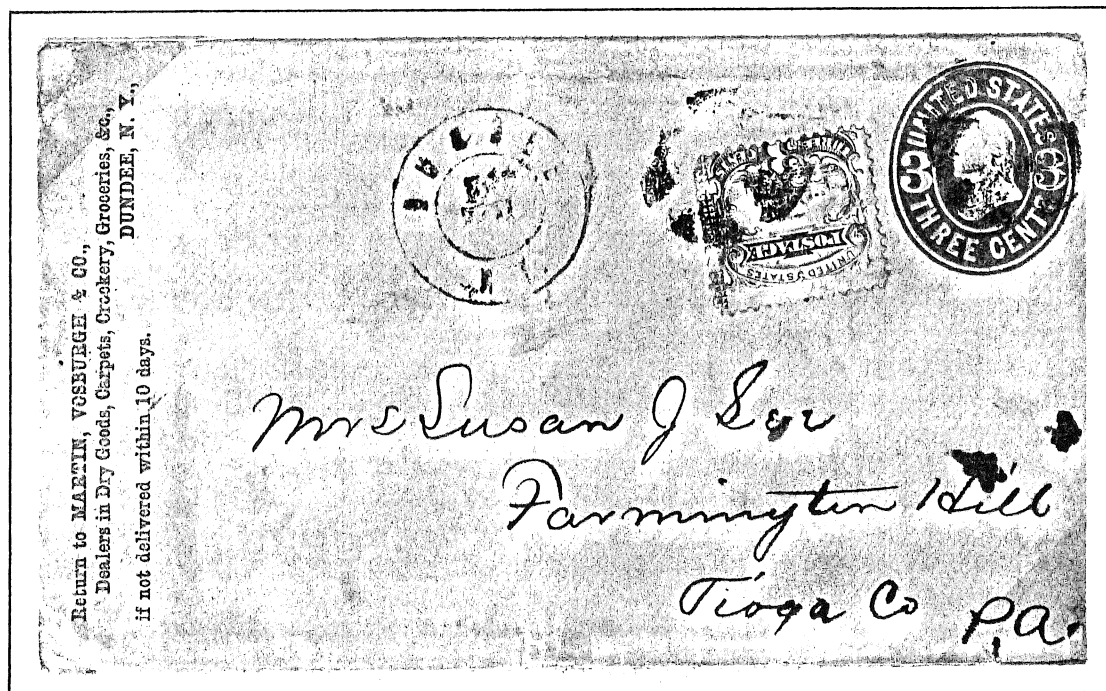 Return to MARTIN, VOSBURGH & CO.,
Dealers in Dry Goods, Carpets, Crockery, Groceries, &c.,
DUNDEE, N. Y.,
if not delivered within 10 days.
UNITED STATES
3 3
THREE CENTS
POSTAGE
UNITED STATES
Mrs Susan J
Farmington Hill
Tioga Co PA.